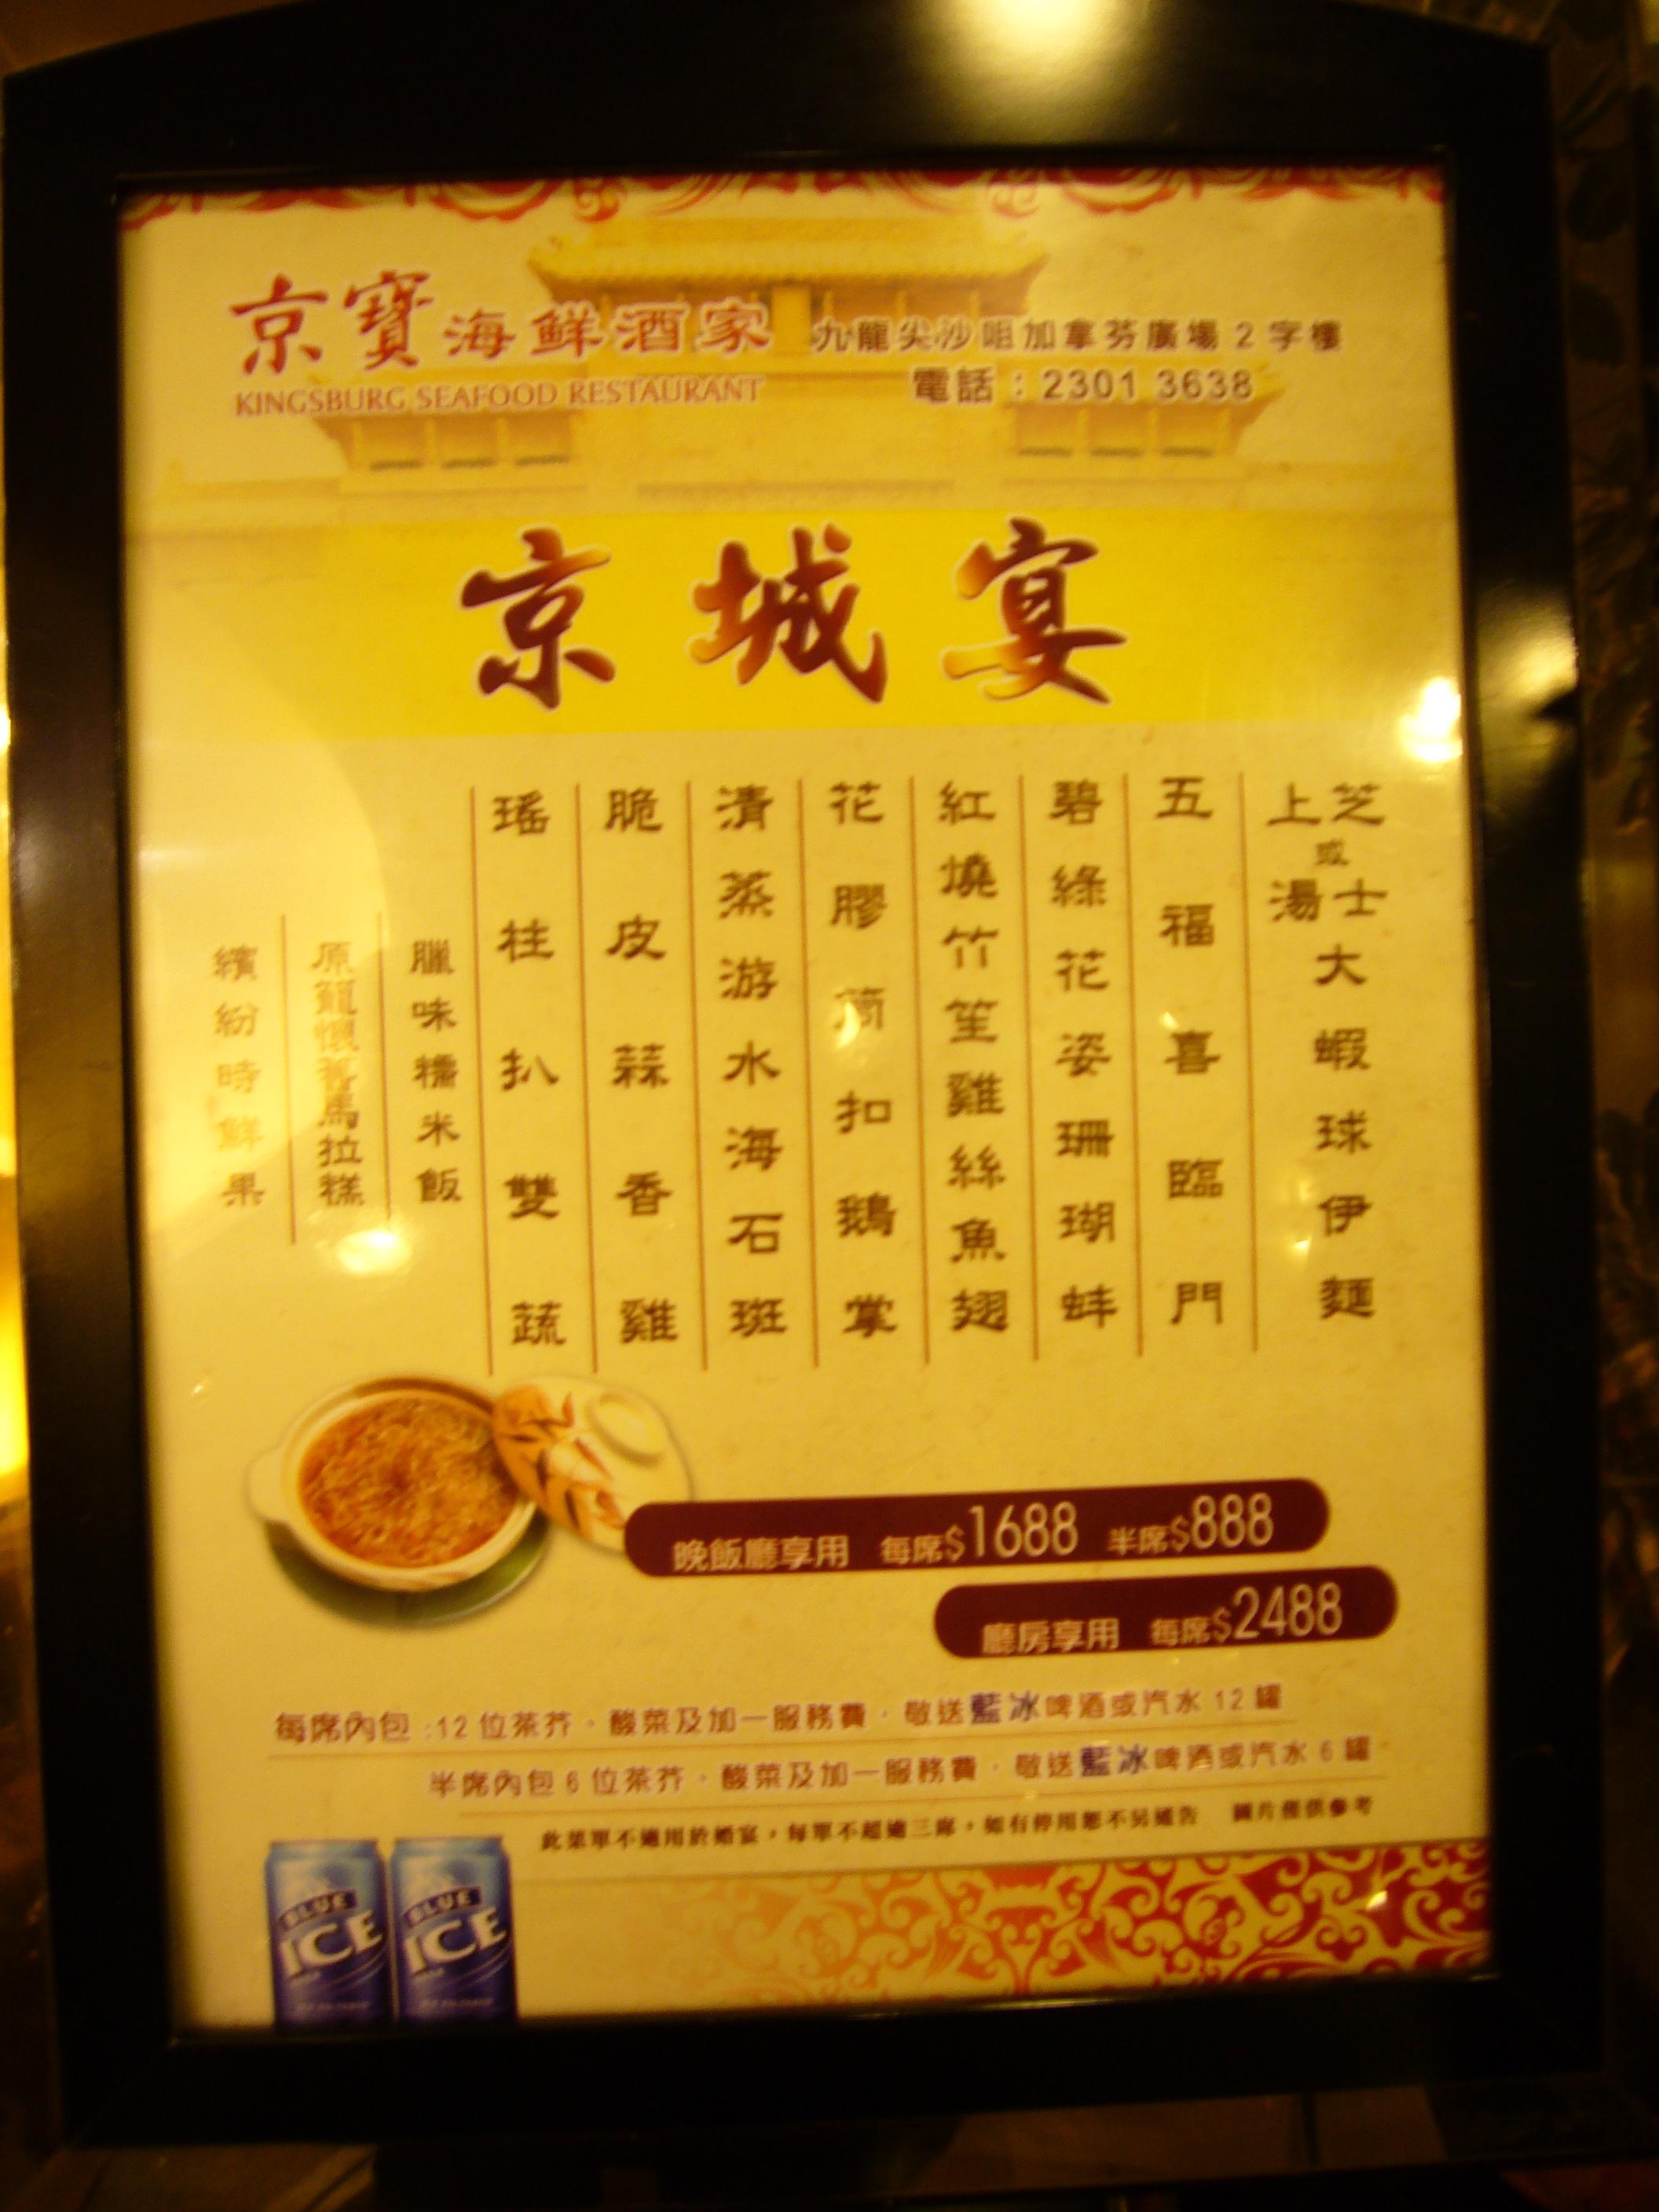 京寶海鮮酒家
KINGSBURG SEAFOOD RESTAURANT
九龍尖沙咀加拿芬廣場 2 字樓
電話：2301 3638
京城宴
芝士或上湯大蝦球伊麵
五福喜臨門
碧綠花姿珊瑚蚌
紅燒竹笙雞絲魚翅
花膠筒扣鵝掌
清蒸游水海石斑
脆皮蒜香雞
瑤柱扒雙蔬
臘味糯米飯
原籠懷舊馬拉糕
繽紛時鮮果
晚飯廳享用 每席$1688 半席$888
廳房享用 每席$2488
每席內包 :12 位茶芥、酸菜及加一服務費，敬送藍冰啤酒或汽水 12 罐
半席內包 6 位茶芥、酸菜及加一服務費，敬送藍冰啤酒或汽水 6 罐
此菜單不適用於婚宴，每單不超過三席，如有停用恕不另通告 圖片僅供參考
BLUE ICE
BLUE ICE